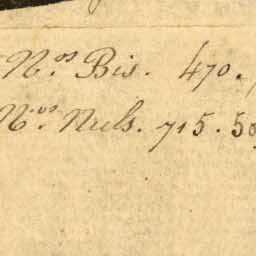 N.os Bis. 470.
N.os Nuls. 715. 50